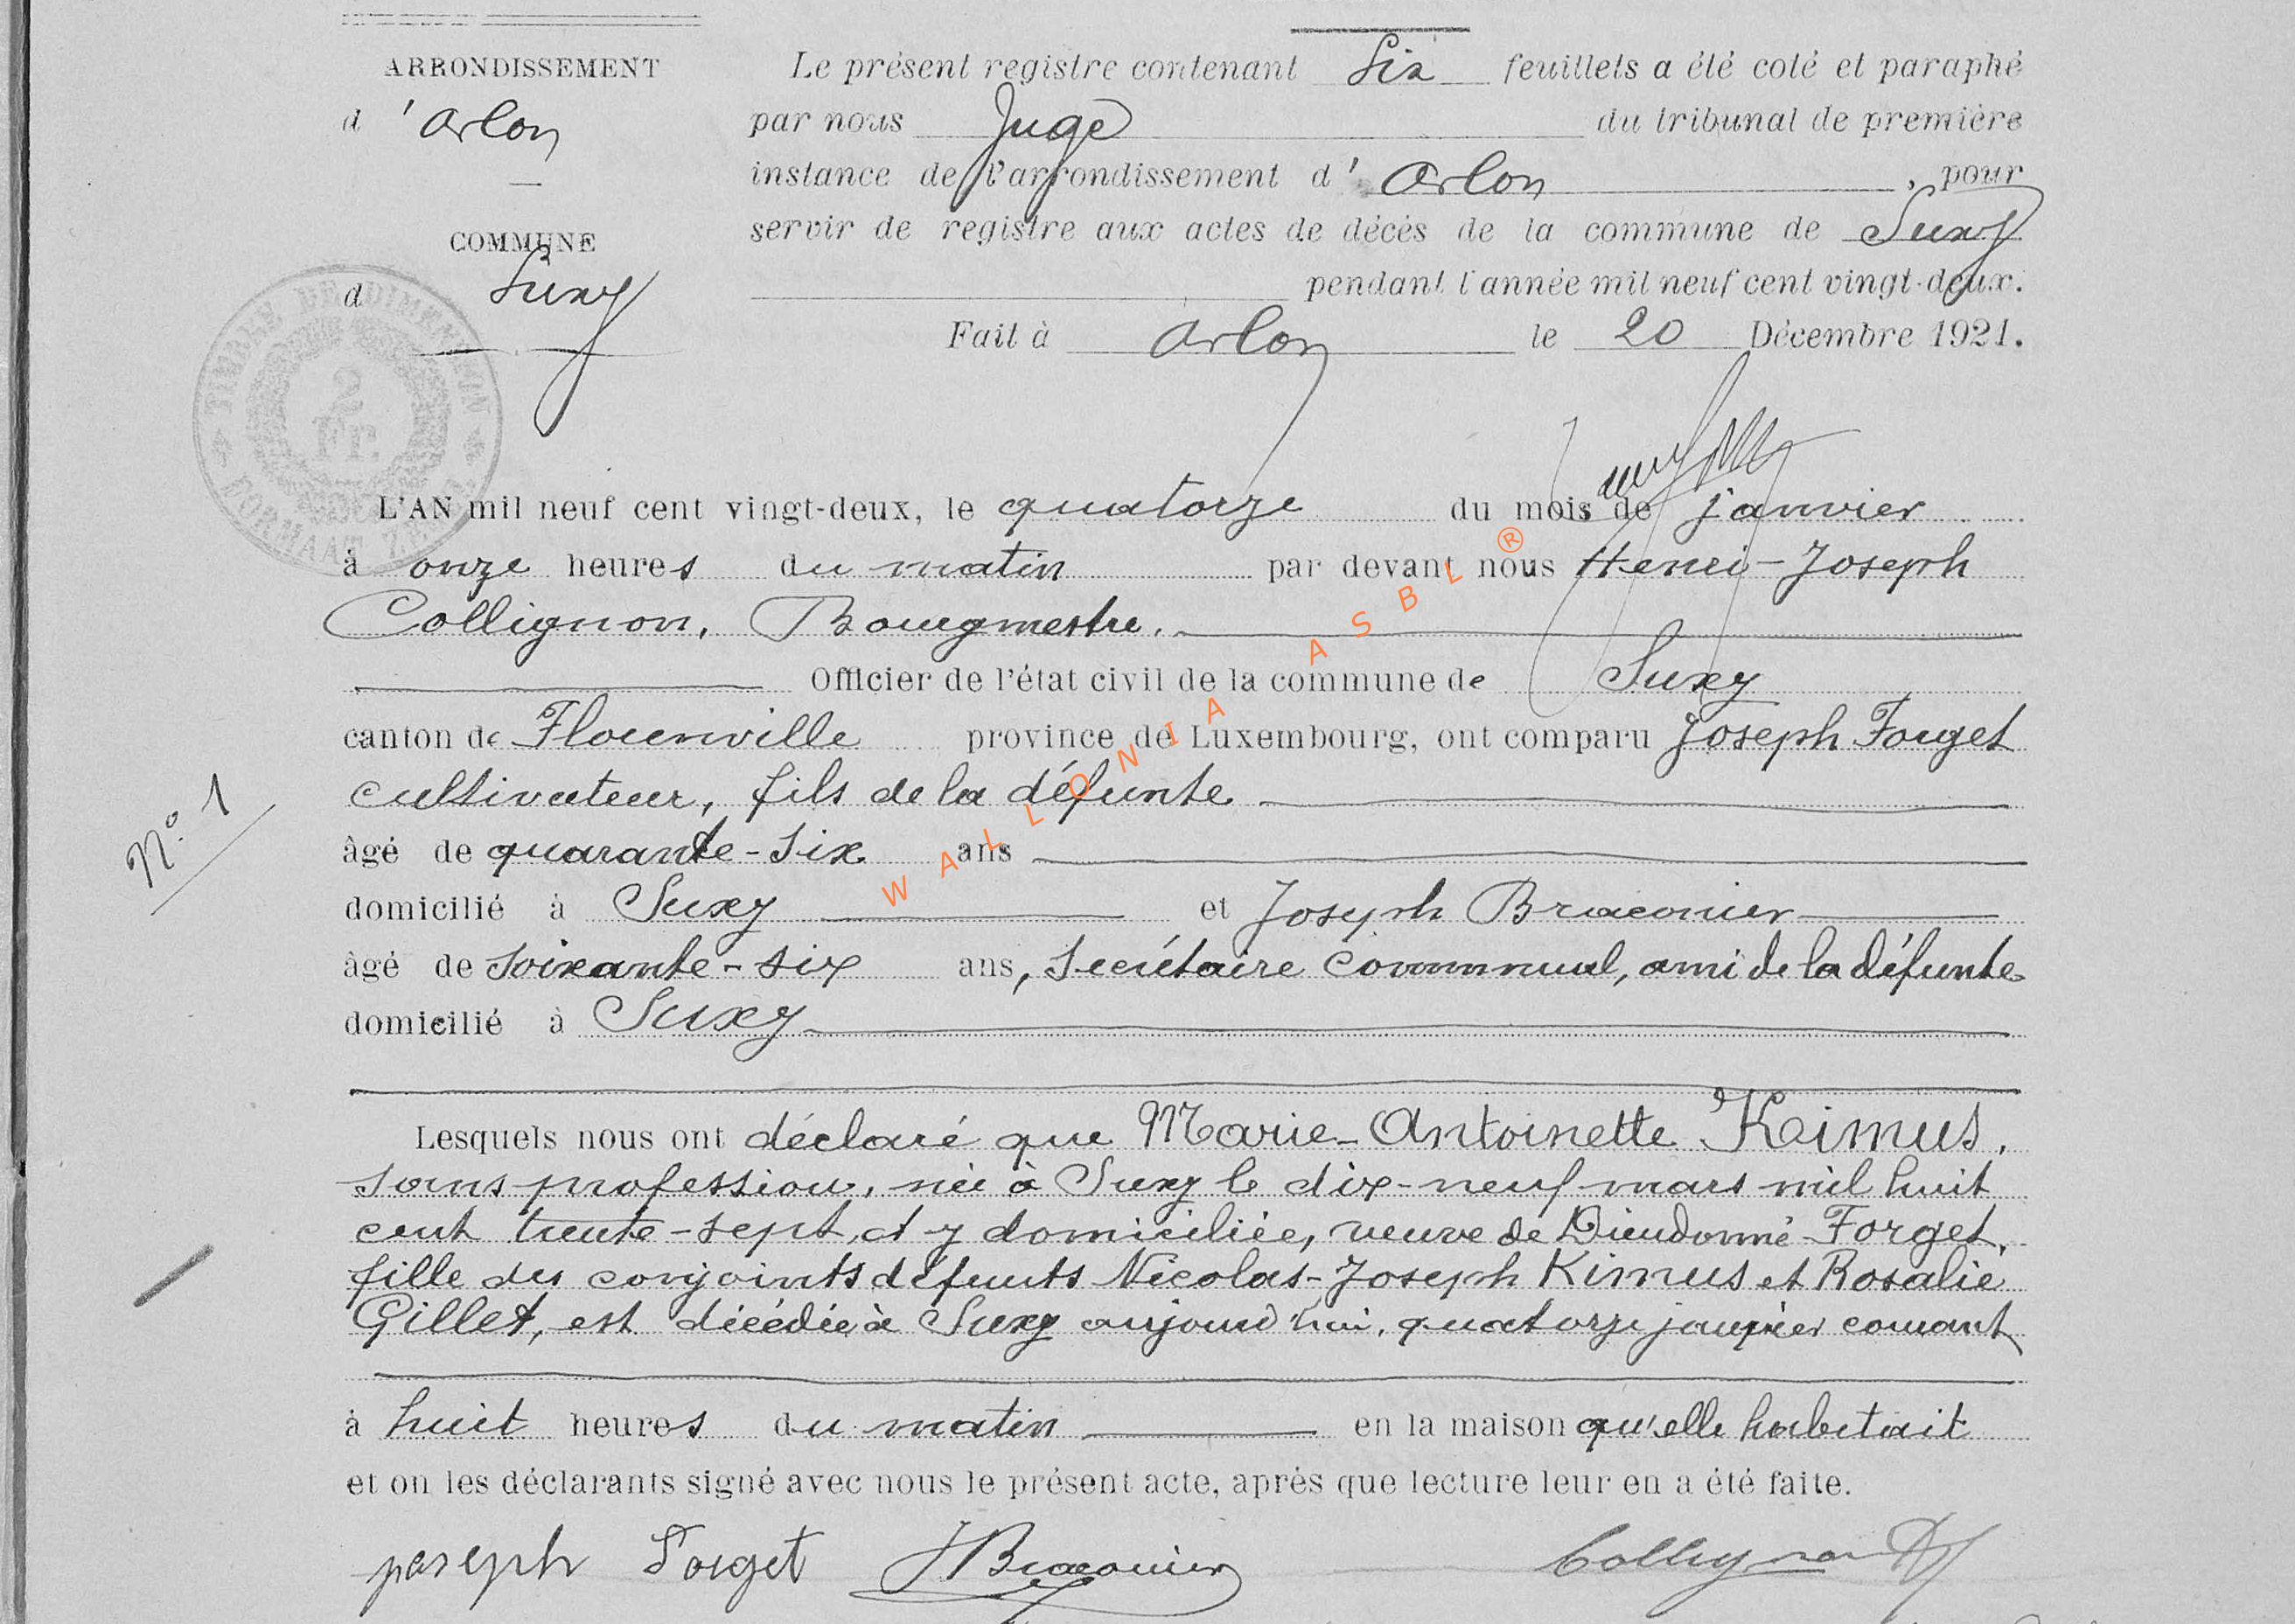 ARRONDISSEMENT
d'Arlon
COMMUNE
d Suxy
TIMBRE DE DIMENSION
2
Fr.
FORMAAT ZEGEL
Le présent registre contenant Six feuillets a été coté et paraphé
par nous Juge du tribunal de première
instance de l'arrondissement d'Arlon, pour
servir de registre aux actes de décès de la commune de Suxy
pendant l'année mil neuf cent vingt-deux.
Fait à Arlon le 20 Décembre 1921.
L'AN mil neuf cent vingt-deux, le quatorze du mois de janvier
à onze heures du matin par devant nous Henri-Joseph
Collignon, Bourgmestre.
Officier de l'état civil de la commune de Suxy
canton de Florenville province de Luxembourg, ont comparu Joseph Forget
cultivateur, fils de la défunte
N° 1
âgé de quarante-six ans
domicilié à Suxy et Joseph Braconier
âgé de soixante-six ans, secrétaire communal, ami de la défunte
domicilié à Suxy
Lesquels nous ont déclaré que Marie-Antoinette Keimus,
sans profession, née à Suxy le dix-neuf mars mil huit
cent trente-sept, et y domiciliée, veuve de Dieudonné Forget,
fille des conjoints défunts Nicolas-Joseph Kimus et Rosalie
Gillet, est décédée à Suxy aujourd'hui, quatorze janvier courant
à huit heures du matin en la maison qu'elle habitait
et on les déclarants signé avec nous le présent acte, après que lecture leur en a été faite.
joseph Forget JBraconier Collignon HJ
WALLONIA ASBL ®